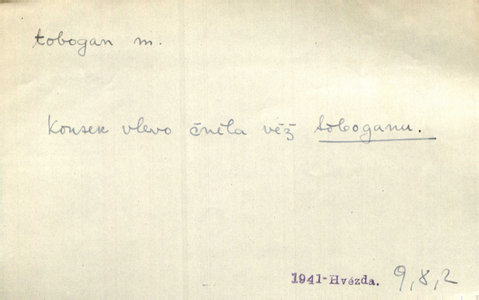 tobogan m.
Kousek vlevo čněla věž toboganu.
1941-Hvězda. 9,8,2